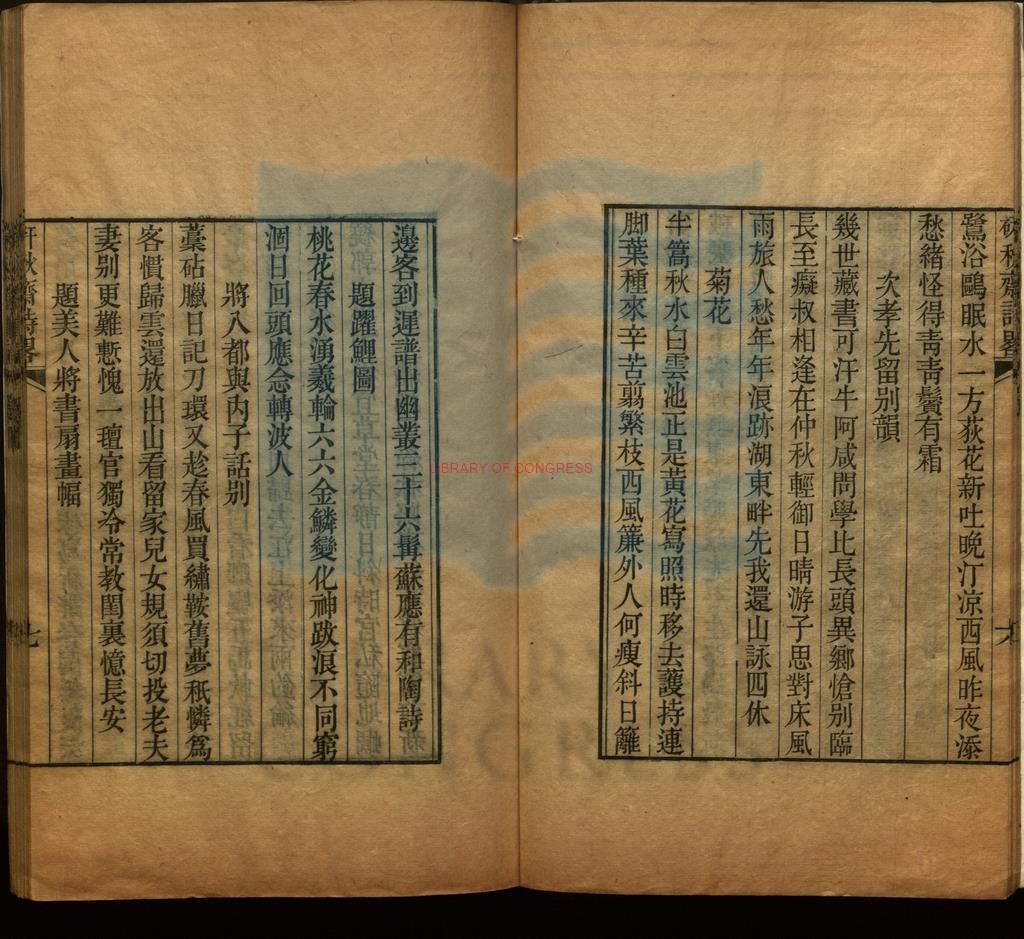 秋齋詩畧
鷺浴鷗眠水一方荻花新吐晚汀凉西風昨夜添
愁緒怪得青青鬢有霜
次孝先留别韻
幾世藏書可汗牛阿咸問學比長頭異鄉愴别臨
長至癡叔相逢在仲秋輕御日晴游子思對床風
雨旅人愁年年浪跡湖東畔先我還山詠四休
菊花
半篙秋水白雲池正是黃花寫照時移去護持連
脚葉種來辛苦翦繁枝西風簾外人何瘦斜日籬
邊客到遲譜出幽叢三十六髯蘇應有和陶詩
題躍鯉圖
桃花春水湧羲輪六六金鱗變化神跋浪不同窮
涸日回頭應念轉波人
將入都與内子話别
藁砧臘日記刀環又趁春風買繡鞍舊夢秖憐爲
客慣歸雲還放出山看留家兒女規須切投老夫
妻别更難慙愧一瓊官獨冷常教閨裏憶長安
題美人將書扇畫幅
秋齋詩畧
七
LIBRARY OF CONGRESS